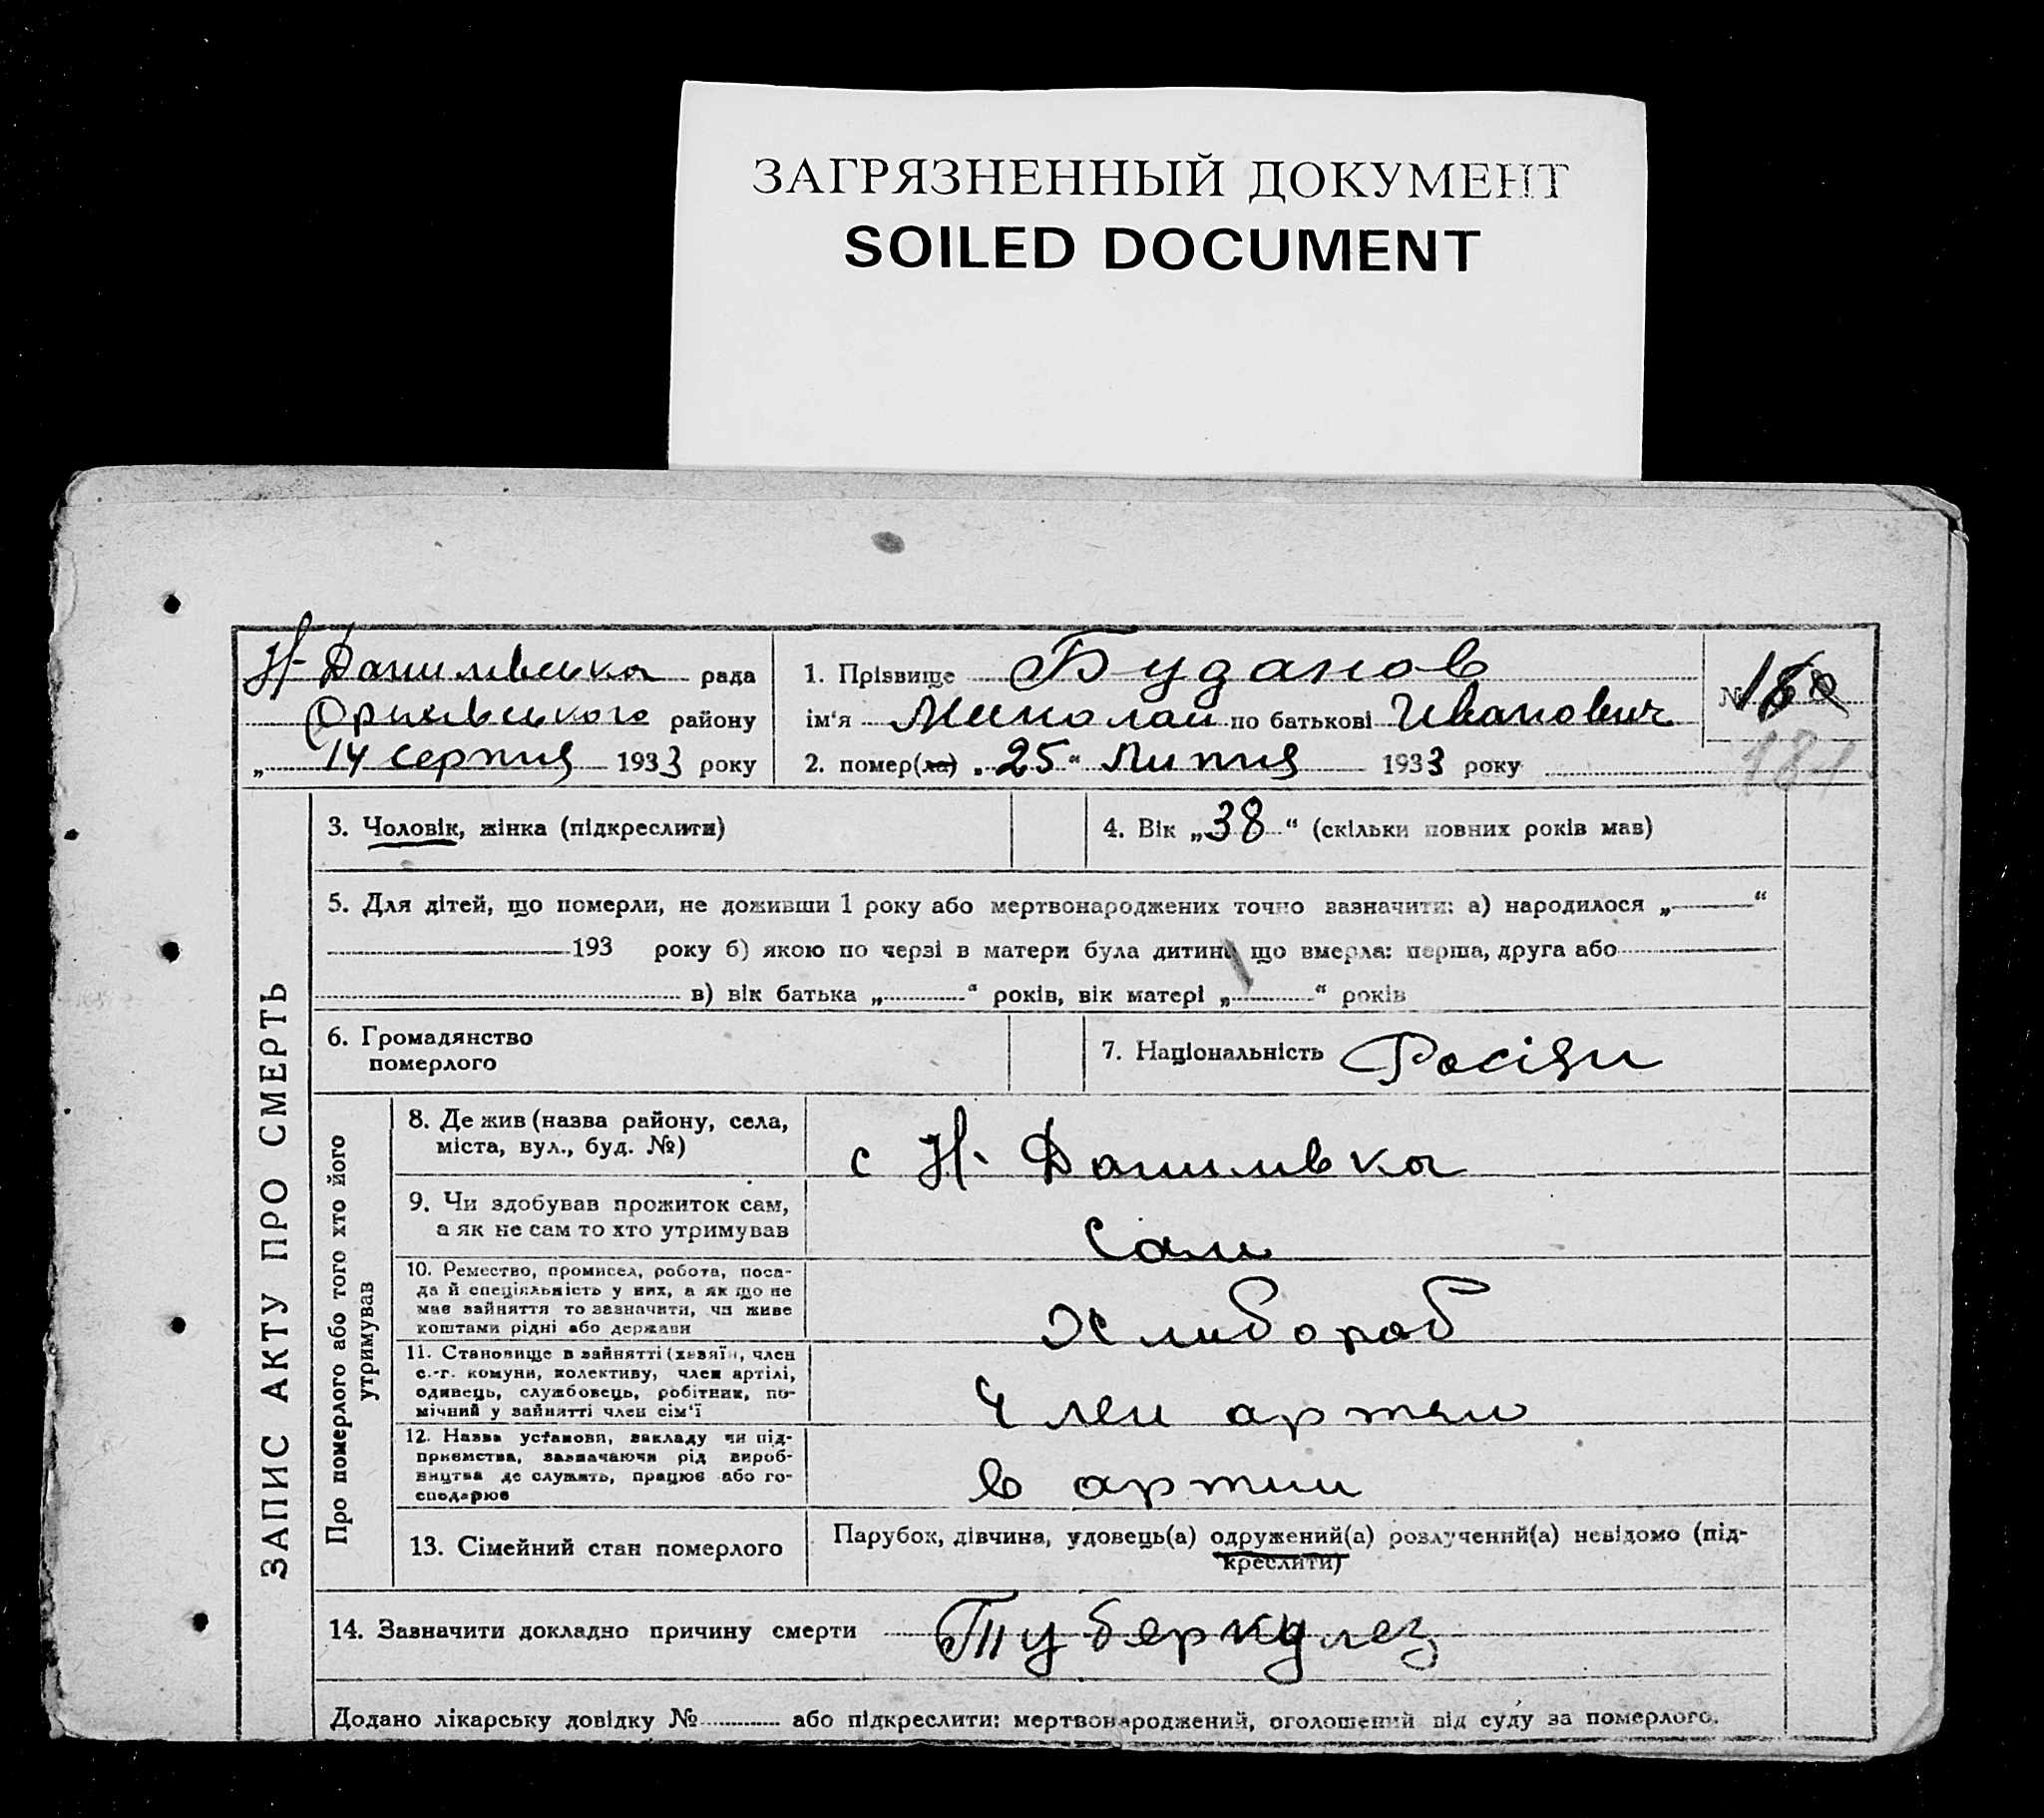 ЗАГРЯЗНЕННЫЙ ДОКУМЕНТ
SOILED DOCUMENT
Н-Данилівська рада
Оріхівського району
„ 14 серпня 1933 року
1. Прізвище Буданов
ім'я Миколай по батькові Иванович
2. помер(ла) „25“ Липня 1933 року
№ 180
181
ЗАПИС АКТУ ПРО СМЕРТЬ
3. Чоловік, жінка (підкреслити)
4. Вік „38“ (скільки повних років мав)
5. Для дітей, що померли, не доживши 1 року або мертвонароджених точно зазначити: а) народилося „ “
193 року б) якою по черзі в матери була дитина що вмерла: перша, друга або
в) вік батька „ “ років, вік матері „ “ років
6. Громадянство
померлого
7. Національність Росіян
Про померлого або того хто його
утримував
8. Де жив (назва району, села,
міста, вул., буд. №)
с Н- Данилівка
9. Чи здобував прожиток сам,
а як не сам то хто утримував
Сам
10. Ремество, промисел, робота, поса-
да й спеціяльність у них, а як що не
має зайняття то зазначити, чи живе
коштами рідні або держави
Хлибороб
11. Становище в зайнятті (хазяїн, член
с.-г. комуни, колективу, член артілі,
одинець, службовець, робітник, по-
мічний у зайнятті член сім'ї
Член артили
12. Назва установи, закладу чи під-
приємства, зазначаючи рід вироб-
ництва де служить, працює або го-
сподарює
в артили
13. Сімейний стан померлого
Парубок, дівчина, удовець(а) одружений(а) розлучений(а) невідомо (під-
креслити)
14. Зазначити докладно причину смерти Туберкулез
Додано лікарську довідку № або підкреслити: мертвонароджений, оголошений від суду за померлого.